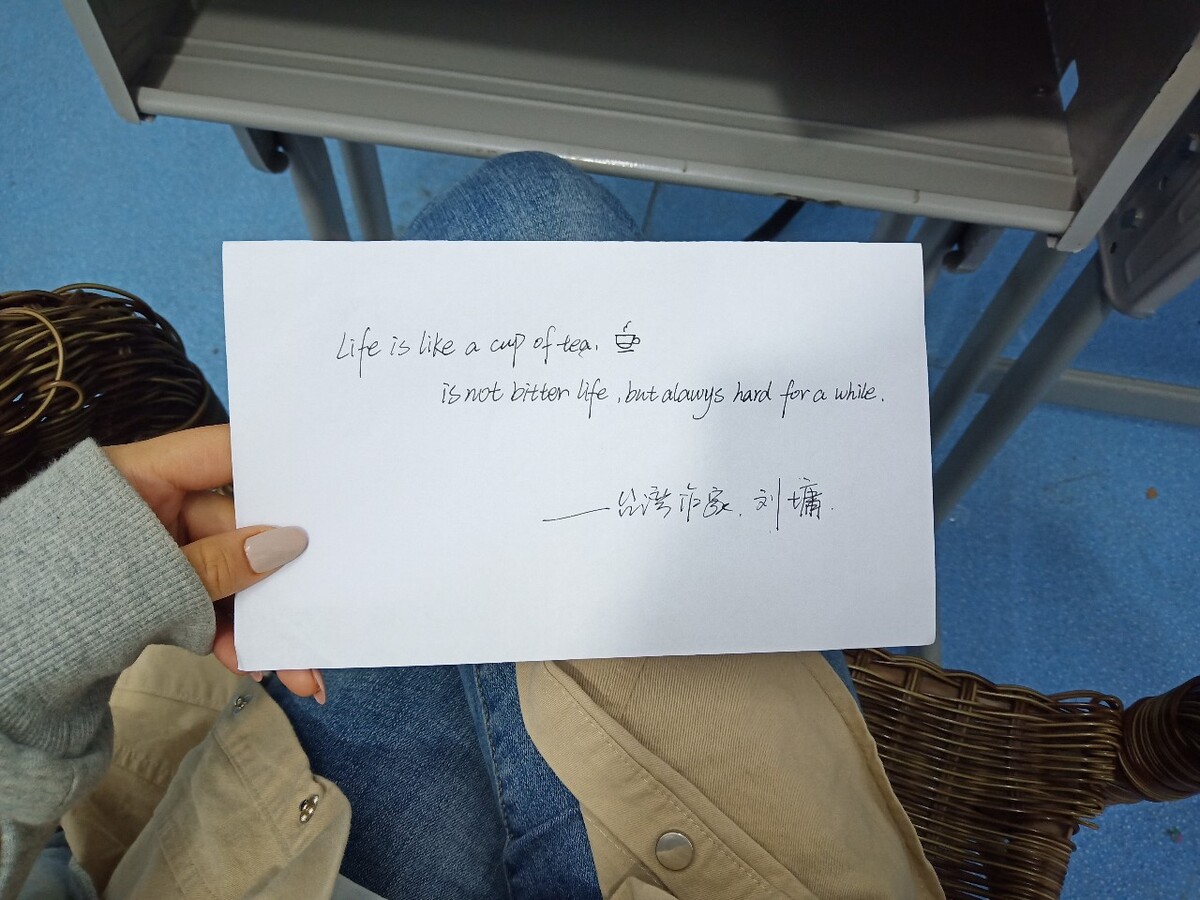 Life is like a cup of tea.
is not bitter life, but alawys hard for a while.
——台湾作家. 刘墉.